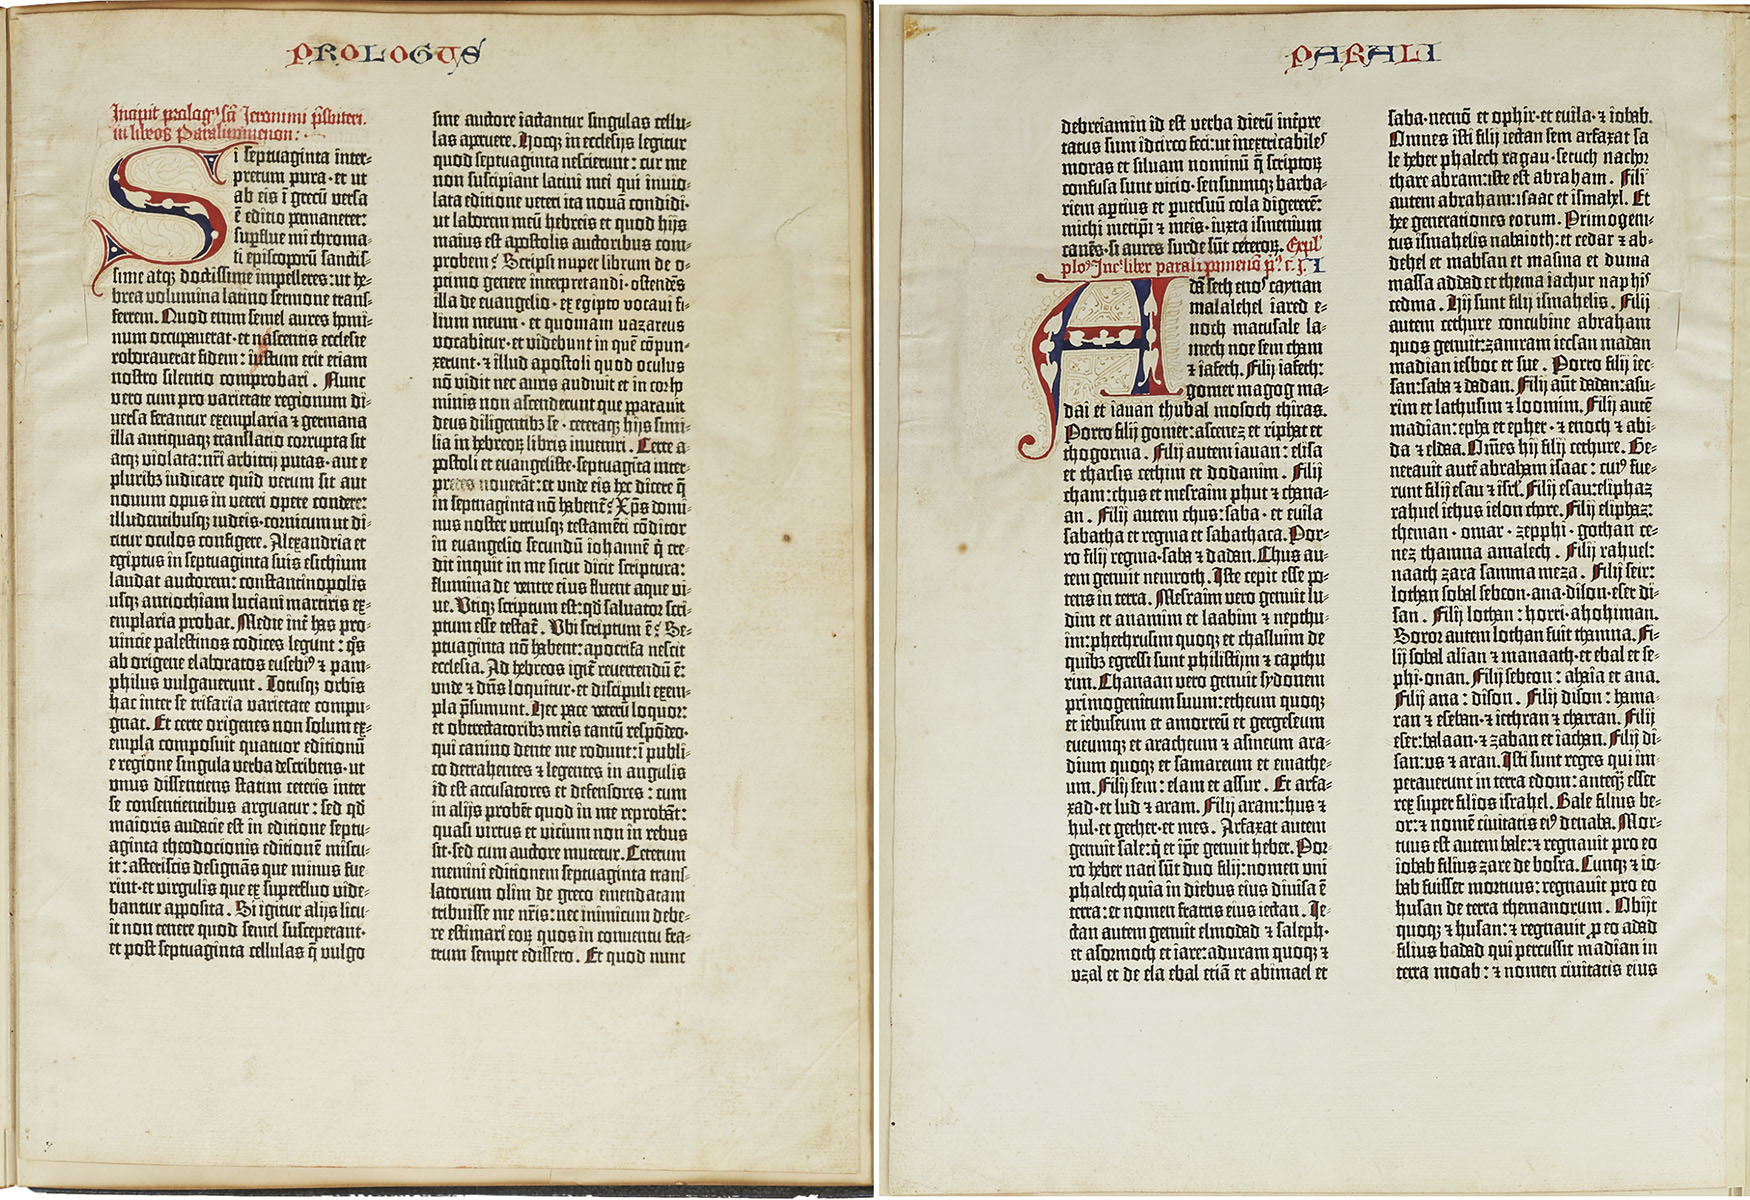 PROLOGUS
Incipit prologꝰ sc̄i Jeronimi p̄sbiteri.
in libros Paralipomenon:
Si septuaginta inter-
pretum pura· et ut
ab eis ī grecū versa
ē editio permaneret:
supflue mi chroma-
ti episcoporū sanctis-
sime atqꝫ doctissime impelleres: ut he-
brea volumina latino sermone trans-
ferrem. Quod enim semel aures homi-
num occupauerat· et nascentis ecclesie
roborauerat fidem: iustum erit etiam
nostro silentio comprobari. Nunc
vero cum pro varietate regionum di-
versa ferantur exemplaria ⁊ germana
illa antiquaqꝫ translatio corrupta sit
atqꝫ violata: nr̄i arbitrij putas· aut e
pluribꝫ iudicare quid verum sit aut
nouum opus in veteri opere condere:
illudentibusqꝫ iudeis· cornicum ut di-
citur oculos configere. Alexandria et
egiptus in septuaginta suis esichium
laudat auctorem: constantinopolis
usqꝫ antiochiam luciani martiris ex-
emplaria probat. Medie int̄ has pro-
vincie palestinos codices legunt: q̄s
ab origene elaboratos eusebiꝰ ⁊ pam-
philus vulgauerunt. Totusqꝫ orbis
hac inter se trifaria varietate compu-
gnat. Et certe origenes non solum ex-
empla composuit quatuor editionū
e regione singula verba describens· ut
vnus dissentiens statim ceteris inter
se consentientibus arguatur: sed qd̄
maioris audacie est in editione septu-
aginta theodocionis editionē miscu-
it: asteriscis designās que minus fue
rint· et virgulis que ex superfluo vide-
bantur apposita. Si igitur alijs licu-
it non tenere quod semel susceperant·
et post septuaginta cellulas q̄ vulgo
sine auctore iactantur singulas cellu-
las aperuere. Hocqꝫ in ecclesijs legitur
quod septuaginta nescierunt: cur me
non suscipiant latini mei qui inuio-
lata editione veteri ita nouā condidi·
ut laborem meū hebreis et quod hijs
maius est apostolis auctoribus com-
probem? Scripsi nuper librum de o-
primo genere interpretandi· ostendēs
illa de euangelio· ex egipto vocaui fi-
lium meum· et quoniam nazareus
vocabitur· et videbunt in quē cōpun-
xerunt· ⁊ illud apostoli quod oculus
nō vidit nec auris audiuit et in cor ho
minis non ascenderunt que pparauit
deus diligentibꝫ se· ceteraqꝫ hijs simi-
lia in hebreoꝝ libris inueniri. Certe a-
postoli et euangeliste· septuagīta inter-
pretes nouerāt: et unde eis hec dicere q̄
in septuaginta nō habent̄? Xp̄s domi-
nus noster vtriusqꝫ testamēti cōditor
in euangelio secundū iohannē q̄ cre-
dit inquit in me sicut dicit scriptura:
flumina de ventre eius fluent aque vi-
ue. Vtiqꝫ scriptum est: qd̄ saluator scri-
ptum esse testat̄. Vbi scriptum ē? Se-
ptuaginta nō habent: apocrifa nescit
ecclesia. Ad hebreos igit̄ reuertendū ē:
vnde ⁊ dn̄s loquitur· et discipuli exem-
pla p̄sumunt. Hec pace veterū loquor:
et obtrectatoribꝫ meis tantū respōdeo·
qui canino dente me rodunt: ī publi-
co detrahentes ⁊ legentes in angulis
id est accusatores et defensores: cum
in alijs probēt quod in me reprobāt:
quasi virtus et vicium non in rebus
sit· sed cum auctore mutetur. Ceterum
memini editionem septuaginta trans-
latorum olim de greco emendatam
tribuisse me nr̄is: nec inimicum debe-
re estimari eoꝝ quos in conuentu fra-
trum semper edissero. Et quod nunc
PARALI
debreiamin id est verba dierū inťpre
tatus sum idcirco feci: ut inextricabileˢ
moras et siluam nominū q̄ scriptoꝝ
confusa sunt vicio· sensuumqꝫ barba-
riem aptius et p versuū cola digererē:
michi metip̄i ⁊ meis· iuxta ismenium
canēs· si aures surde sūt ceteroꝝ. Expl̓
plogꝰ Inc̓ liber paralipomenō p̓ꝰ. c. j. I
Adā seth enoˢ caynan
malalehel iared e-
noch matusale la-
mech noe sem cham
⁊ iafeth. Filij iafeth:
gomer magog ma-
dai et iauan thubal mosoch thiras.
Porro filij gomer: ascenez et riphat et
thogorma. Filij autem iauan: elisa
et tharsis cethim et dodanim. Filij
cham: chus et mesraim phut ⁊ chana-
an. Filij autem chus: saba· et euila
sabatha et regma et sabathaca. Por-
ro filij regma· saba ⁊ dadan. Chus au-
tem genuit nemroth. Iste cepit esse po-
tens in terra. Mesraim vero genuit lu-
dim et anamim et laabim ⁊ nepthu-
im: phethrusim quoqꝫ et chasluim de
quibꝫ egressi sunt philistijm ⁊ capthu
rim. Chanaan vero genuit sydonem
primogenitum suum: etheum quoqꝫ
et iebuseum et amorreū et gergeseum
eueumqꝫ et aracheum ⁊ asineum ara-
dium quoqꝫ et samareum et emathe-
um. Filij sem: elam et assur. Et arfa-
xad· et lud ⁊ aram. Filij aram: hus ⁊
hul· et gether· et mes. Arfaxat autem
genuit sale: q̄ et ip̄e genuit heber. Por-
ro heber nati sūt duo filij: nomen vni
phalech quia in diebus eius diuisa ē
terra: et nomen fratris eius iectan. Ie-
ctan autem genuit elmodad ⁊ saleph·
et asormoth et iare: aduram quoqꝫ ⁊
vzal et de ela ebal etiā et abimael et
saba· necnō et ophir· et euila· ⁊ iobab.
Omnes isti filij iectan sem arfaxat sa
le heber phalech ragau· seruch nachor
thare abram: iste est abraham. Filij
autem abraham: isaac et ismahel. Et
hee generationes eorum. Primogeni-
tus ismahelis nabaioth: et cedar ⁊ ab-
dehel et mabsan et masma et duma
massa adad et thema iachur naphiˢ
cedma. Hij sunt filij ismahelis. Filij
autem cethure concubine abraham
quos genuit: zamram iecsan madan
madian iesboc et sue. Porro filij iec-
san: saba ⁊ dadan. Filij aūt dadan: asu-
rim et lathusim ⁊ loomim. Filij autē
madian: epha et epher· ⁊ enoch ⁊ abi-
da ⁊ eldaa. Om̄es hij filij cethure. Ge-
nerauit autē abraham isaac: cuiꝰ fue-
runt filij esau ⁊ isrl̄. Filij esau: eliphaz
rahuel iehus ielon chore. Filij eliphaz:
theman· omar· zepphi· gothan ce-
nez thamna amalech. Filij rahuel:
naath zara samma meza. Filij seir:
lothan sobal sebeon· ana· dison· eser di-
san. Filij lothan: horri· ahohiman.
Soror autem lothan fuit thamna. Fi-
lij sobal alian ⁊ manaath· et ebal et se-
phi· onan. Filij sebeon: ahaia et ana.
Filij ana: dison. Filij dison: hama-
ran ⁊ eseban· ⁊ iethran ⁊ charran. Filij
eser: balaan· ⁊ zaban et iachan. Filij di-
san: vs ⁊ aran. Isti sunt reges qui im-
perauerunt in terra edom: anteqꝫ esset
rex super filios israhel. Bale filius be-
or: ⁊ nomē ciuitatis eiꝰ denaba. Mor-
tuus est autem bale: ⁊ regnauit pro eo
iobab filius zare de bosra. Cunqꝫ ⁊ io-
bab fuisset mortuus: regnauit pro eo
husan de terra themanorum. Obijt
quoqꝫ ⁊ husan: ⁊ regnauit p eo adad
filius badad qui percussit madian in
terra moab: ⁊ nomen ciuitatis eius